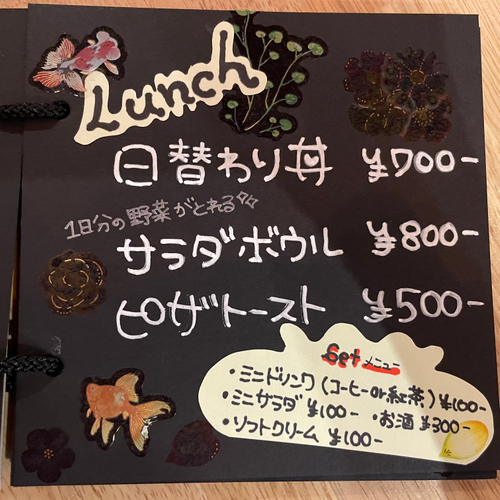 Lunch
日替わり丼 ¥700-
1日分の野菜がとれる
サラダボウル ¥800-
ピザトースト ¥500-
Setメニュー
・ミニドリンク(コーヒーor紅茶)¥100-
・ミニサラダ ¥100- ・お酒 ¥300-
・ソフトクリーム ¥100-